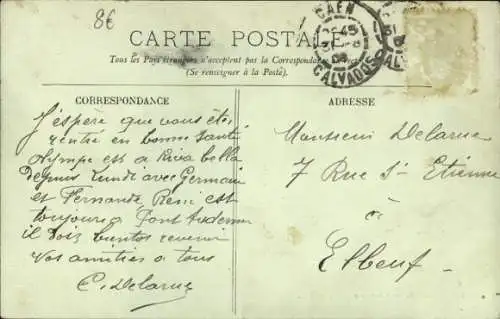 8€
CARTE POSTALE
Tous les Pays étrangers n'acceptent pas la Correspondance
(Se renseigner à la Poste).
CAEN
CALVADOS
CORRESPONDANCE
J'espère que vous êtes
rentré en bonne santé
Olympe est a Riva bella
depuis Lundi avec Germain
et Fernande, René est
toujours a Pont Audemer
il dois bientot revenir
Vos amitiés a tous
C. Delarue
ADRESSE
Monsieur Delarue
7 Rue St Etienne
à
Elbeuf